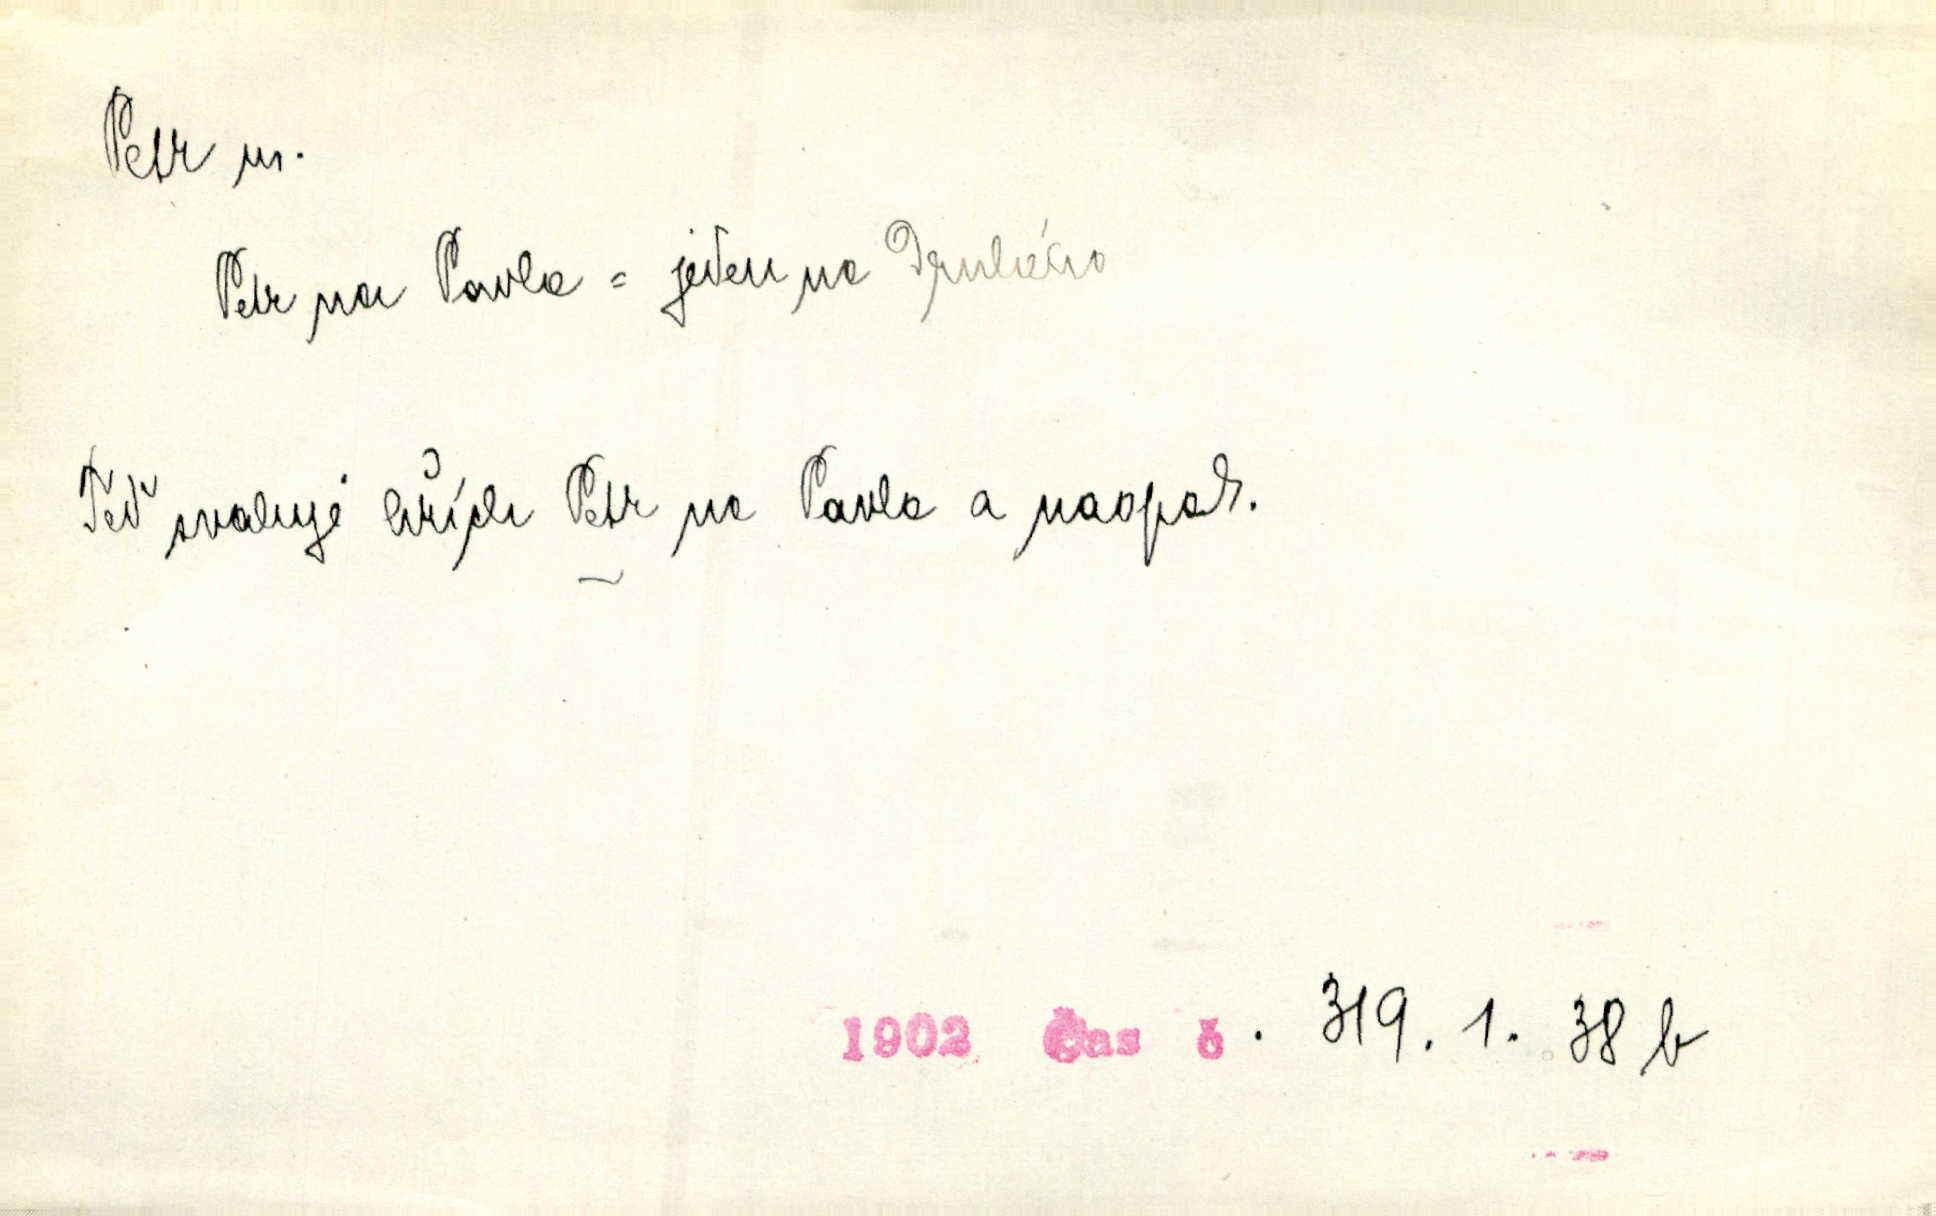 Petr m.
Petr na Pavla = jeden na druhého
Teď svaluje hřích Petr na Pavla a naopak.
1902 Čas č. 319. 1. 38 b